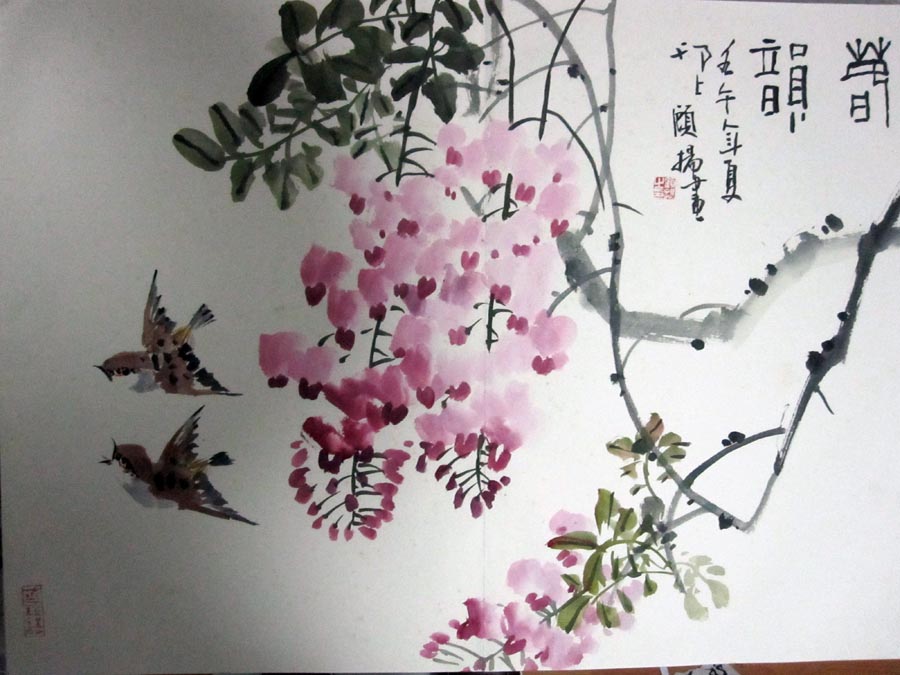 春
韻
壬午年夏
邗上頤揚畫